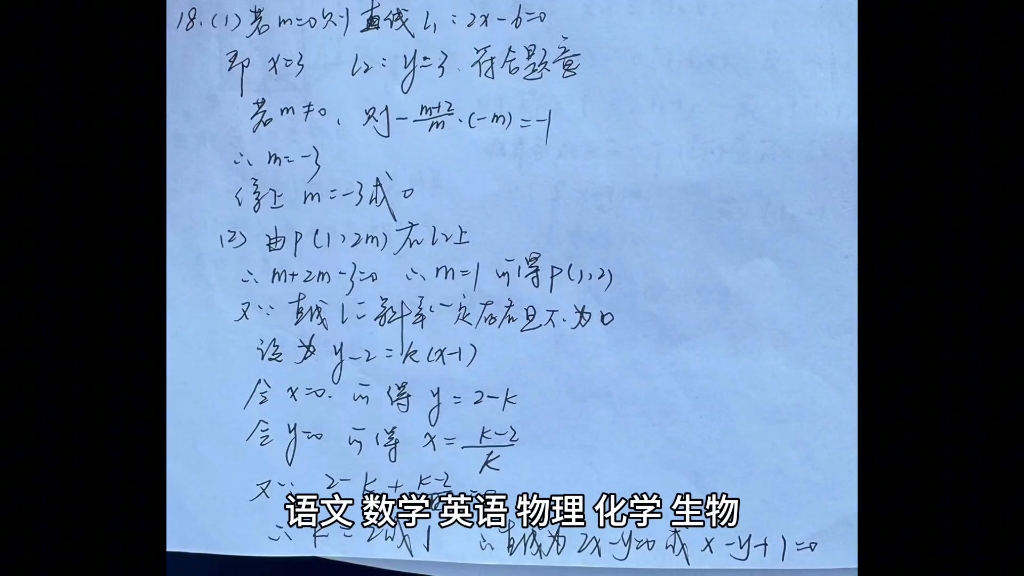 18.(1) 若 m=0 则 直线 L₁: 2x-6=0
即 x=3 L2: y=3. 符合题意
若 m≠0, 则 -\frac{m+2}{m}·(-m)=-1
∴ m=-3
综上 m=-3或0
(2) 由P(1,2m)在l2上
∴ m+2m-3=0 ∴ m=1 可得P(1,2)
又∵ 直线 l 斜率一定存在且不为0
设为 y-2=k(x-1)
令 x=0. 可得 y=2-k
令 y=0 可得 x=\frac{k-2}{k}
又∵ 2-k+
语文 数学 英语 物理 化学 生物
∴ k=2或1 ∴直线为 2x-y=0 或 x-y+1=0